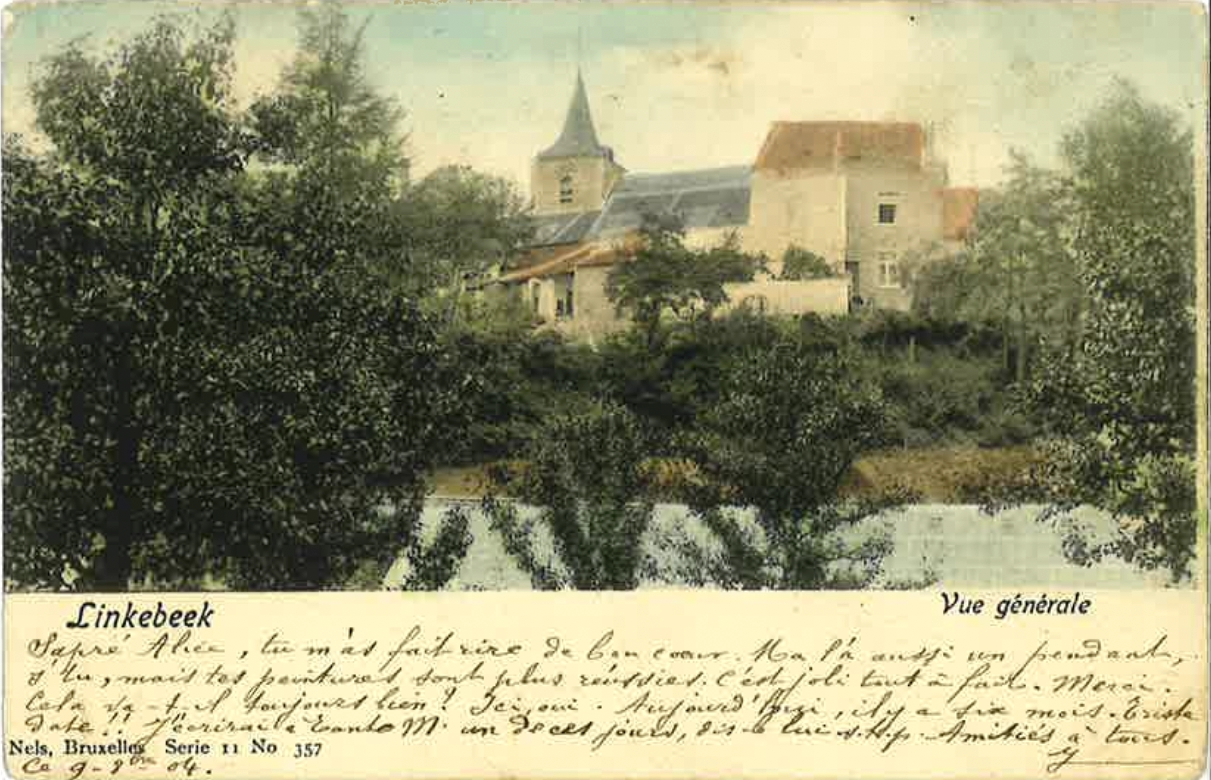 Linkebeek
Vue générale
Sapré Alice, tu m'as fait rire de bon coeur. là aussi un pendant,
s'tu, mais tes peintures sont plus réussies. C'est joli tout à fait. Merci.
Cela va-t-il toujours bien? Ici, oui. Aujourd'hui, il y a six mois. Triste
date!! J'écrirai à Tante M. un de ces jours, dis-le lui s.t.p. Amitiés à tous.
Nels, Bruxelles Serie 11 No 357
Ce 9-8bre 04.